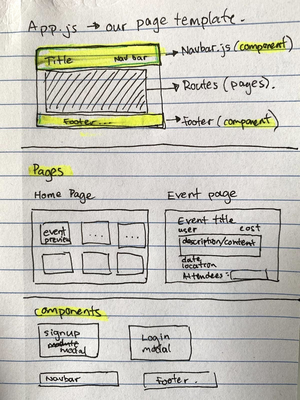 App.js → our page template.
Title Nav bar
→ Navbar.js (component)
→ Routes (pages).
Footer...
→ footer (component)
Pages
Home Page
event
preview
...
...
Event page
Event title
user cost
description/content
date
location
Attendees:
components
signup
modal
Login
modal
Navbar
footer.